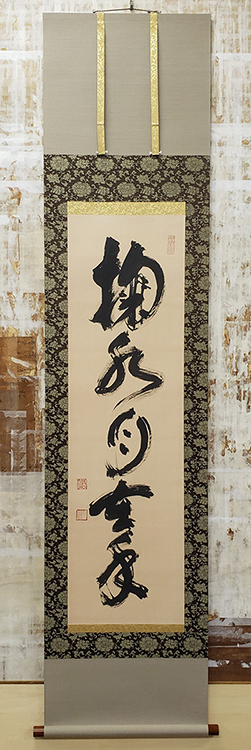 掬水月在手